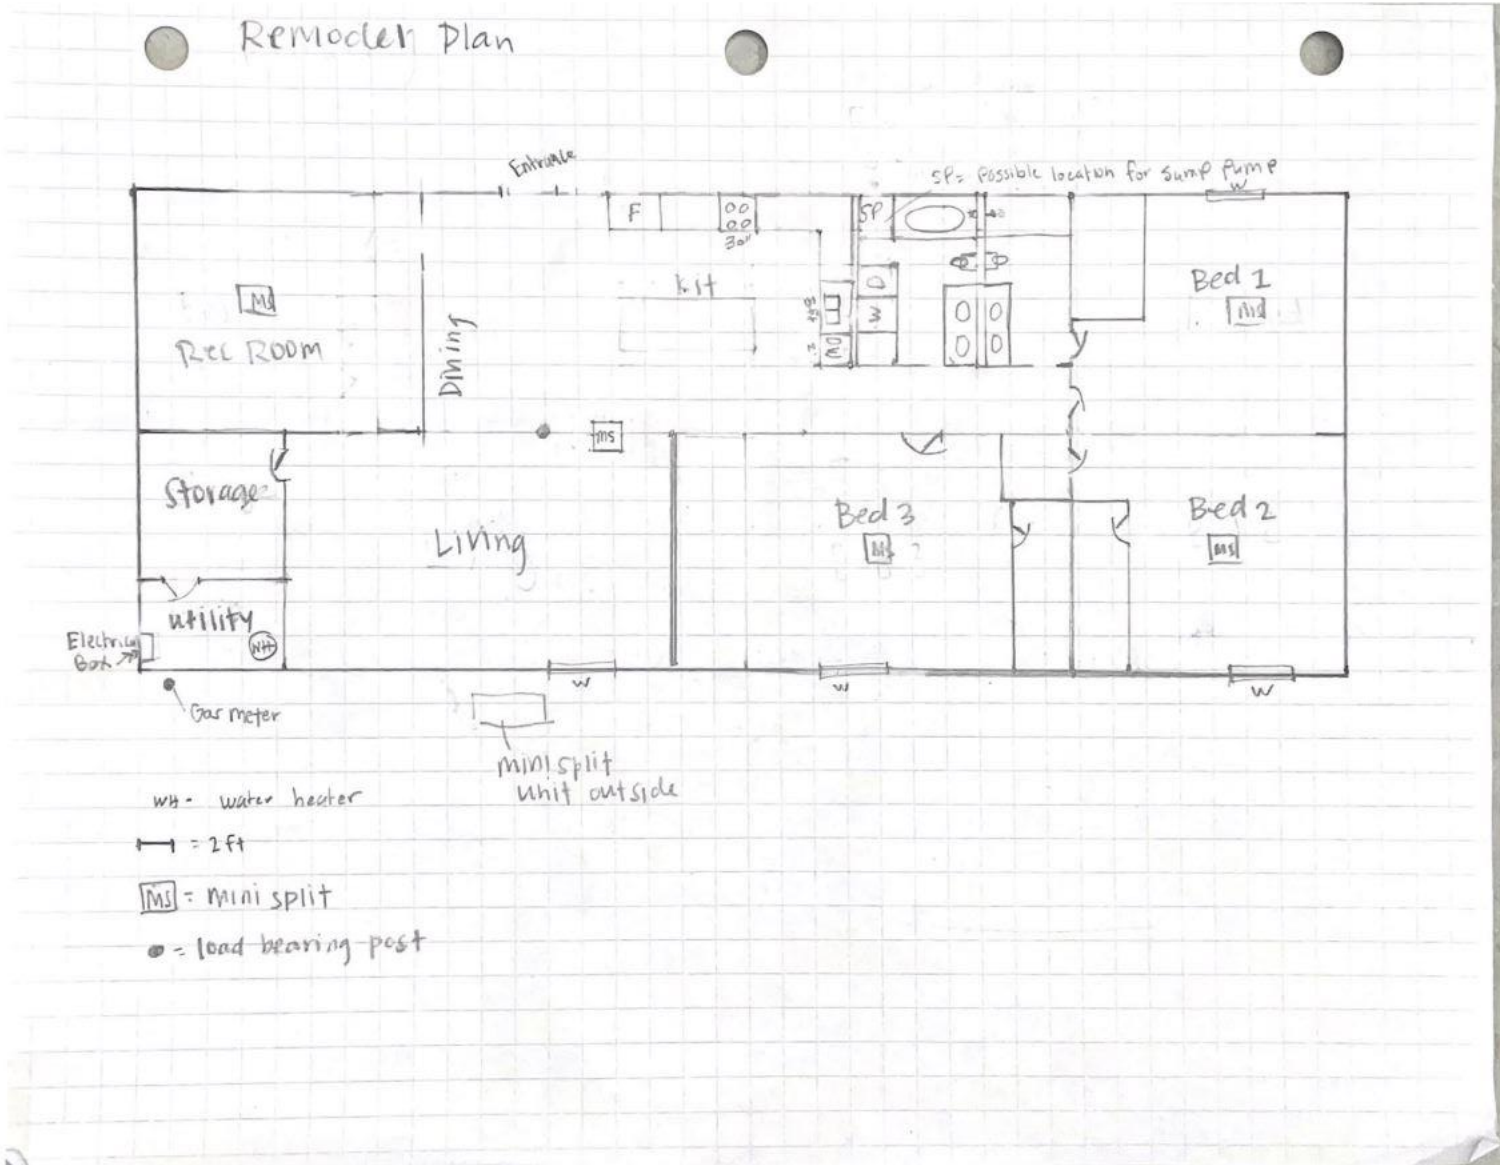 Remodel Plan
Entrance
SP= Possible location for Sump Pump
W
F
30"
SP
Kit
D
W
Bed 1
MS
MS
Rec Room
Dining
MS
Storage
Living
Bed 3
MS
Bed 2
MS
utility
WH
Electrical
Box
W
W
W
Gas meter
mini split
unit outside
WH- water heater
= 2ft
MS = mini split
= load bearing post